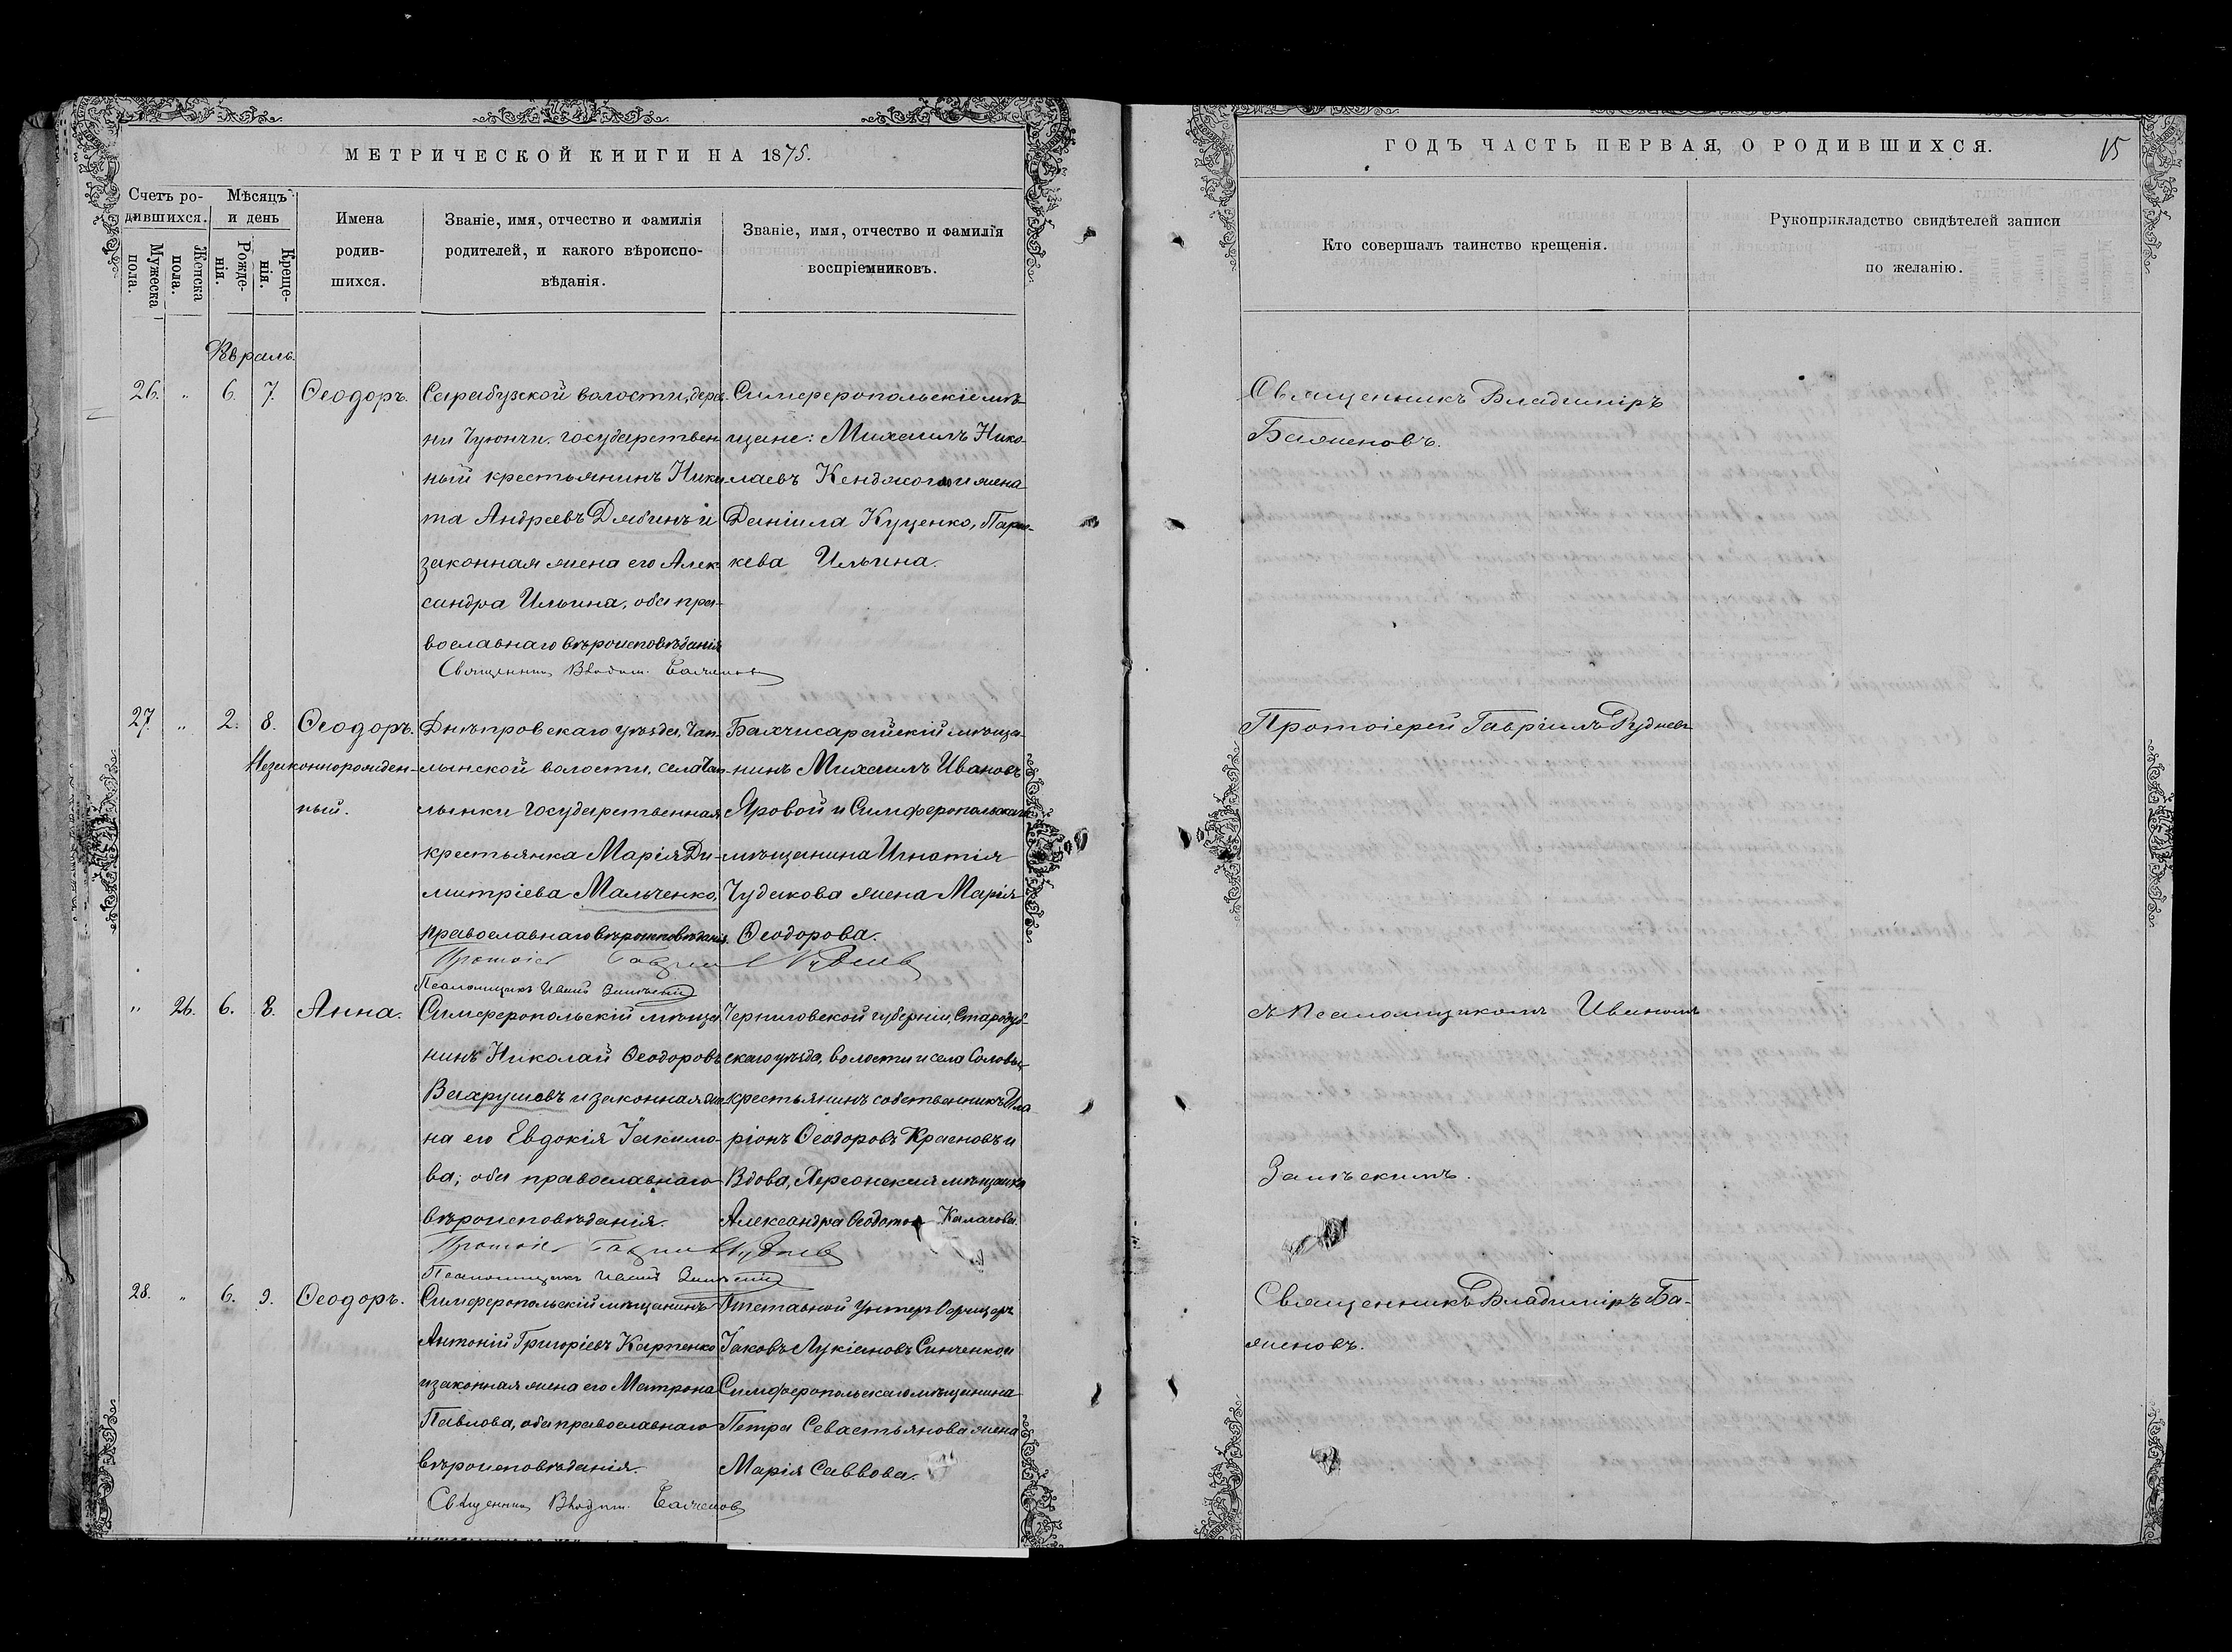 МЕТРИЧЕСКОЙ КНИГИ НА 1875.
Счетъ ро-
дившихся.
Мѣсяцъ
и день
Мужеска
пола.
Женска
пола.
Рожде-
нія.
Креще-
нія.
Имена
родив-
шихся.
Званіе, имя, отчество и фамилія
родителей, и какого вѣроиспо-
вѣданія.
Званіе, имя, отчество и фамилія
воспріемниковъ.
Февраль.
26. „ 6. 7. Ѳеодоръ.
Сарабузской волости, дерев-
ни Чуюнчи, государствен-
ный крестьянинъ Ники-
та Андреевъ Дябинъ и
законная жена его Алек-
сандра Ильина, оба пра-
вославнаго вѣроисповѣданія
Священникъ Владим. Баженовъ
Симферопольскіе мѣ-
щане: Михаилъ Нико-
лаевъ и жена
Даніила Куценко, Парас-
кева Ильина.
27. „ 2. 8. Ѳеодоръ.
Незаконнорожден-
ный.
Днѣпровскаго уѣзда, Чап-
лынской волости, села Чап-
лынки государственная
крестьянка Марія Ди-
митріева Мальченко,
православнаго вѣроисповѣданія.
Протоіерей Гавріилъ Рудневъ
Псаломщикъ Иванъ
Бахчисарайскій мѣща-
нинъ Михаилъ Ивановъ
Яровой и Симферопольскаго
мѣщанина Игнатія
Чудакова жена Марія
Ѳеодорова.
„ 26. 6. 8. Анна.
Симферопольскій мѣща-
нинъ Николай Ѳеодоровъ
Вахрушевъ и законная же-
на его Евдокія Іакимо-
ва, оба православнаго
вѣроисповѣданія.
Протоіерей Гавріилъ Рудневъ
Псаломщикъ Иванъ
Черниговской губерніи, Стародуб-
скаго уѣзда, волости и села
крестьянинъ собственникъ Ила-
ріонъ Ѳеодоровъ Красновъ и
Вдова, Херсонская мѣщанка
Александра Калачова.
28. „ 6. 9. Ѳеодоръ.
Симферопольскій мѣщанинъ
Антоній Григоріевъ Карпенко
и законная жена его Матрона
Павлова, оба православнаго
вѣроисповѣданія.
Священникъ Владим. Баженовъ
Отставной Унтеръ Офицеръ
Іаковъ Лукіановъ Синченко и
Симферопольскаго мѣщанина
Петра Севастьянова жена
Марія Саввова.
ГОДЪ ЧАСТЬ ПЕРВАЯ, О РОДИВШИХСЯ.
15
Кто совершалъ таинство крещенія.
Рукоприкладство свидѣтелей записи
по желанію.
Священникъ Владиміръ
Баженовъ.
Протоіерей Гавріилъ Рудневъ
съ Псаломщикомъ Иваномъ
Священникъ Владиміръ Ба-
женовъ.